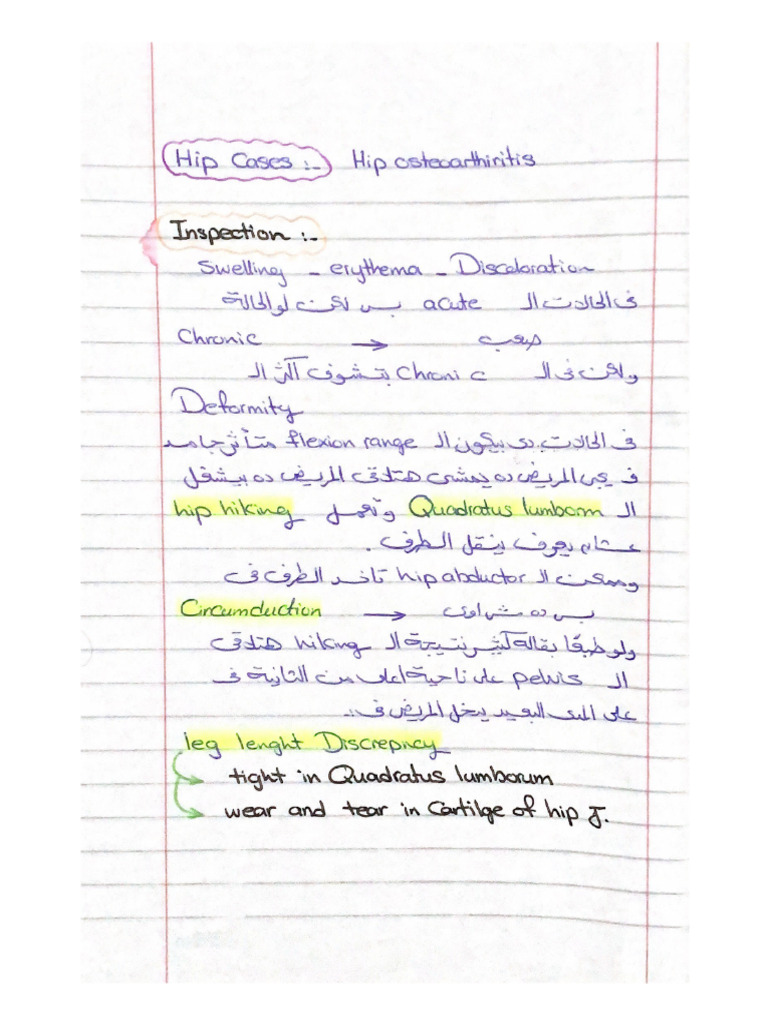 Hip Cases :- Hip osteoarthiritis
Inspection :-
Swelling - erythema - Discoloration
فى الحالات الـ acute بس لكن لو الحالة
Chronic → صعب
ولكن فى الـ Chronic بتشوف أكثر الـ
Deformity
فى الحالات دى بيكون الـ flexion range متأثر جامد
فـ يجى المريض ده يمشى هتلاقى المريض ده بيشغل
الـ Quadratus lumborm وتعمل hip hiking
عشان يعرف ينقل الطرف .
وممكن الـ hip abductor تاخد الطرف فى
Circumduction → بس ده مش اوى
ولو طبقا بقاله كتير نتيجة الـ hiking هتلاقى
الـ pelvis على ناحية اعلى من التانية فـ
على المدى البعيد يدخل المريض فـ :.
leg lenght Discrepncy
tight in Quadratus lumborum
wear and tear in Cartilge of hip J.